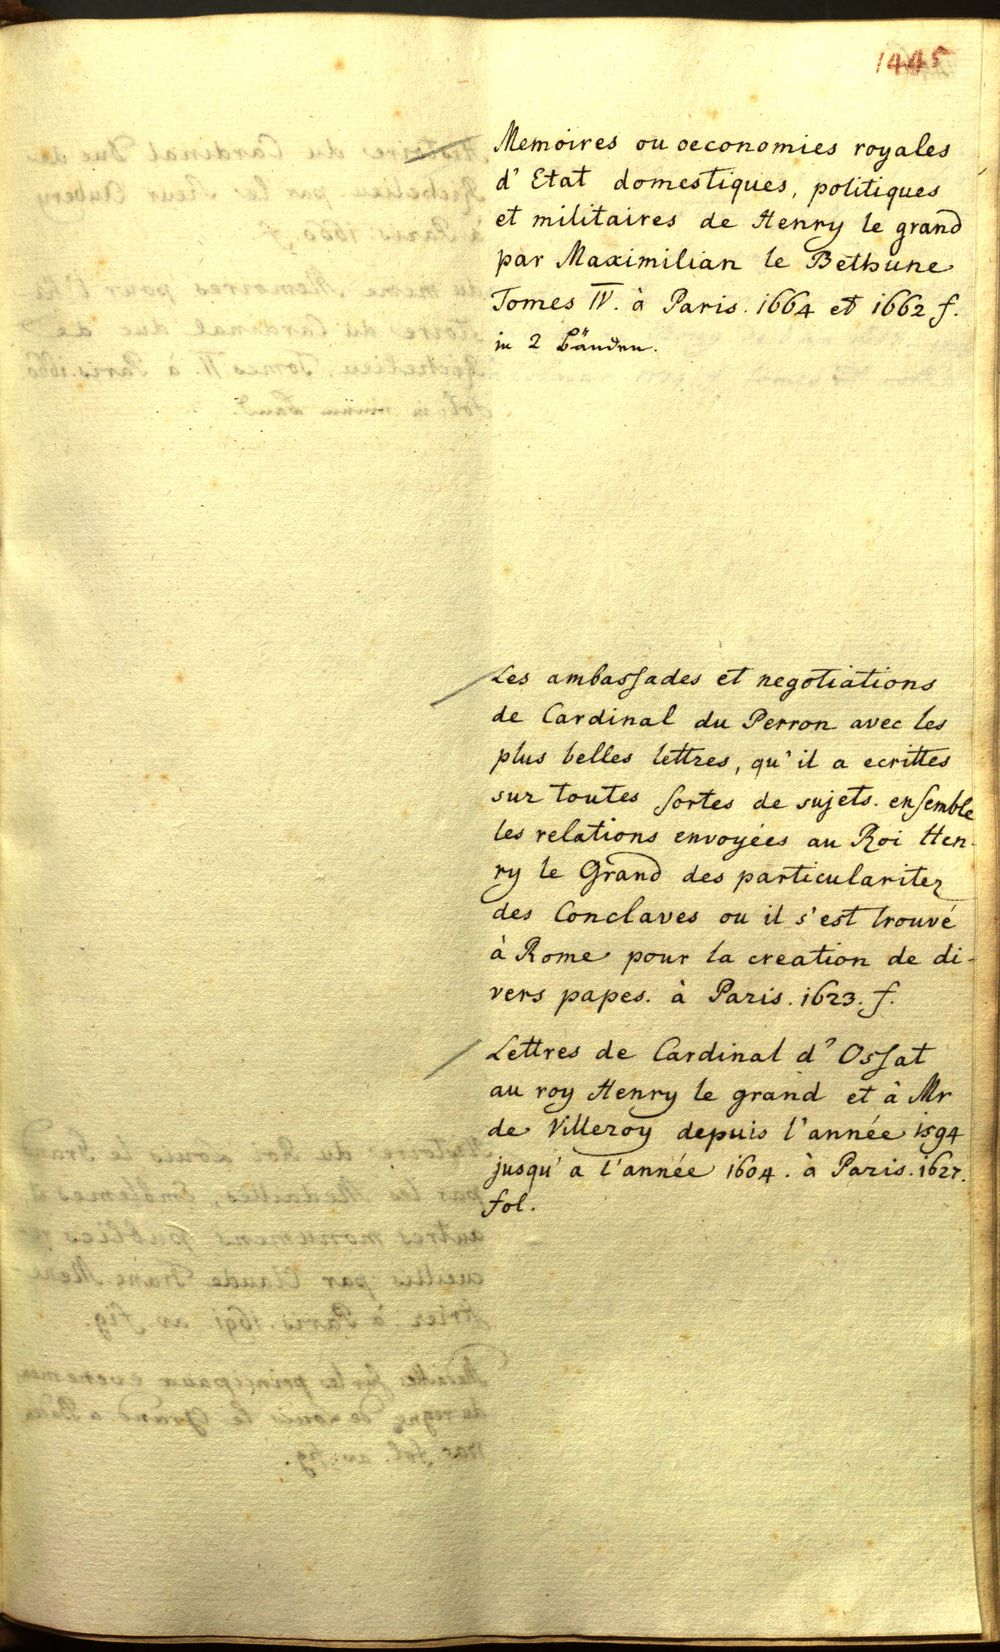 1445
Memoires ou oeconomies royales
d'Etat domestiques, politiques
et militaires de Henry le grand
par Maximilian le Bethune
Tomes IV. à Paris. 1664 et 1662 f.
in 2 Bänden.
Les ambassades et negotiations
de Cardinal du Perron avec les
plus belles lettres, qu'il a ecrittes
sur toutes sortes de sujets. ensemble
les relations envoyées au Roi Hen-
ry le Grand des particularitez
des Conclaves ou il s'est trouvé
à Rome pour la creation de di-
vers papes. à Paris. 1623. f.
Lettres de Cardinal d'Ossat
au roy Henry le grand et à Mr
de Villeroy depuis l'année 1594
jusqu'a l'année 1604. à Paris. 1627.
fol.